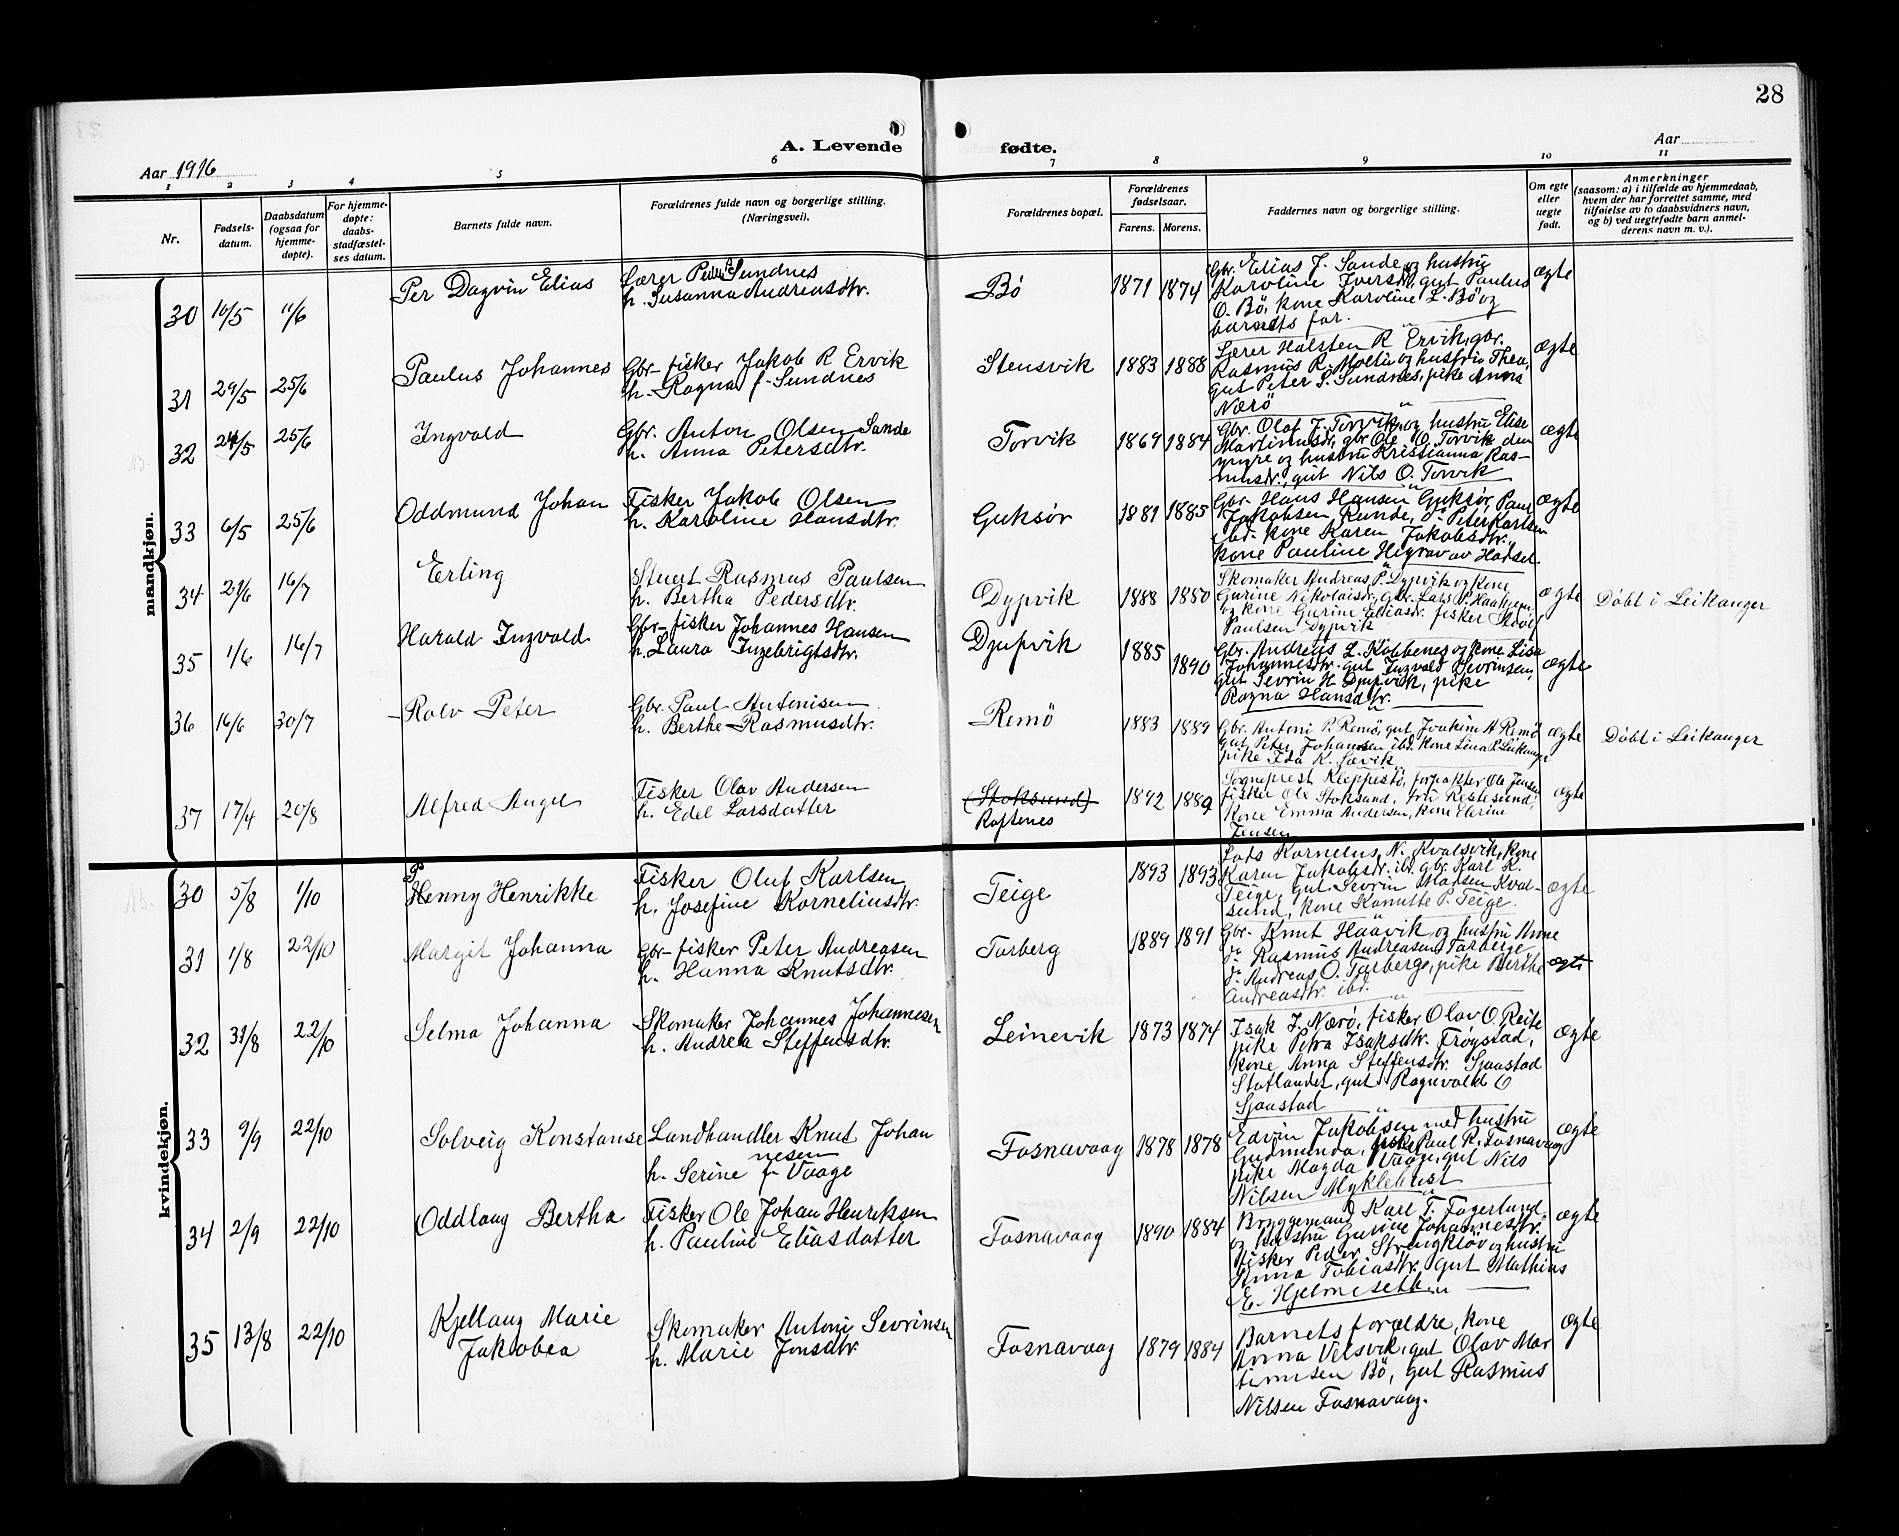 28
A. Levende fødte.
Aar 1916
Aar
1 2 3 4 5 6 7 8 9 10 11
Nr.
Fødsels-
datum.
Daabsdatum
(ogsaa for
hjemme-
døpte).
For hjemme-
døpte:
daabs-
stadfæstel-
ses datum.
Barnets fulde navn.
Forældrenes fulde navn og borgerlige stilling.
(Næringsvei).
Forældrenes bopæl.
Forældrenes
fødselsaar.
Farens. Morens.
Faddernes navn og borgerlige stilling.
Om egte
eller
uegte
født.
Anmerkninger
(saasom: a) i tilfælde av hjemmedaab,
hvem der har forrettet samme, med
tilføielse av to daabsvidners navn,
og b) ved uegtefødte barn anmel-
derens navn m. v.).
mandkjøn.
30 10/5 11/6 Per Dagvin Elias
Lærer Peder Sundnes
h. Susanna Andreasdtr.
Bö 1871 1874
Gbr. Elias J. Sande og hustru
Karoline Iversdtr, gut Paulus
O. Bö, kone Karoline L. Bö og
barnets far.
ægte
31 29/5 25/6 Paulus Johannes
Gbr-fisker Jakob R Ervik
h. Ragna f. Sundnes
Stensvik 1883 1888
Lærer Halsten R Ervik, gbr.
Rasmus R. Moltu og hustru Thea,
gut Peter P. Sundnes, pike Anna
Nærö
ægte
32 24/5 25/6 Ingvald
Gbr. Anton Olsen Sande
h. Anna Petersdtr.
Torvik 1869 1884
Gbr. Olaf J. Torvik og hustru Elise
Martinusdr, gbr Ole O. Torvik den
yngre og hustru Kristianna Ras-
musdtr, gut Nils O. Torvik
ægte
33 6/5 25/6 Oddmund Johan
Fisker Jakob Olsen
h. Karoline Hansdtr.
Guksör 1881 1885
Gbr. Hans Hansen Guksör, Paul
Jakobsen Runde, do Peter Karlsen
ibd. kone Karen Jakobsdtr.,
kone Pauline
ægte
34 21/6 16/7 Erling
Stuert Rasmus Paulsen
h. Bertha Pedersdtr.
Dypvik 1888 1880
Skomaker Andreas P. Dypvik og kone
Gurine Nikolaisdr, gbr. Lars P. Haakjem
og kone Gurine Eliasdr. fisker
Paulsen Dypvik
ægte Döbt i Leikanger
35 1/6 16/7 Harald Ingvald
Gbr-fisker Johannes Hansen
h. Laura Ingebrigtsdtr.
Djupvik 1885 1890
Gbr. Andreas L. Kobbenes og kone Lisa
Johannesdtr. gut Ingvald Sevrinsen,
gut Sevrin H Djupvik, pike
Ragna Hansdtr.
ægte
36 16/6 30/7 Rolv Peter
Gbr. Paul Antonisen
h. Berthe Rasmusdtr.
Remö 1883 1889
Gbr. Antoni P. Remö, gut Joakim A Remö
gut Peter Johansen ibd. kone Lina P. Leikanger
pike Ida K. Sævik
ægte Döbt i Leikanger
37 17/4 20/8 Alfred Angel
Fisker Olav Andersen
h. Edel Larsdatter
(Stoksund)
Raftenes
1892 1889
Sogneprest Kleppestö, forpakter Ole Jensen
fisker Ole Stoksund, fru Ristesund,
Kone Emma Andersen, kone Elerine
Jensen
ægte
kvindekjøn.
30 5/8 1/10 Henny Henrikke
Fisker Oluf Karlsen
h. Josefine Korneliusdtr.
Teige 1893 1893
Lods Kornelius N. Kvalsvik, kone
Karen Jakobsdtr. ibd. gbr. Karl K.
Teige, gut Sevrin Madsen Kval-
sund, kone Kanutte P. Teige.
ægte
31 1/8 22/10 Margit Johanna
Gbr-fisker Peter Andreasen
h. Hanna Knutsdtr.
Tarberg 1889 1891
Gbr. Knut Haavik og hustru Anne
do Rasmus Andreasen Tarberge
do Andreas O. Tarberge, pike Berthe
Andreasdtr. ibd.
ægte
32 31/8 22/10 Selma Johanna
Skomaker Johannes Johannesen
h. Andrea Steffensdtr.
Leinevik 1873 1874
Isak J. Nærö, fisker Olav O. Reite
pike Petra Isaksdtr. Frøystad,
kone Anna Steffensdtr. Sjaastad
Statlandet, gut Ragnvald O
Sjaastad
ægte
33 9/9 22/10 Solveig Konstanse
Landhandler Knut Johan
nesen
h. Serine f. Vaage
Fosnavaag 1878 1878
Edvin Jakobsen med hustru
Gudmunda, fisker Paul R. Fosnavaag
pike Magda Vaage, gut Nils
Nilsen Myklebust
ægte
34 2/9 22/10 Oddlaug Bertha
Fisker Ole Johan Henriksen
h. Pauline Eliasdatter
Fosnavaag 1890 1884
Bryggemand Karl T. Fagerlund,
og hustru Gurine Johannesdtr.
fisker Peder Strengklöv og hustru
Anna Tobiasdtr. gut Mathias
E. Hjelmeseth
ægte
35 13/8 22/10 Kjellaug Marie
Jakobea
Skomaker Antoni Sevrinsen
h. Marie Jonsdtr.
Fosnavaag 1879 1884
Barnets forældre, kone
Anna Velsvik, gut Olav Mar
tinusen Bö, gut Rasmus
Nilsen Fosnavaag.
ægte